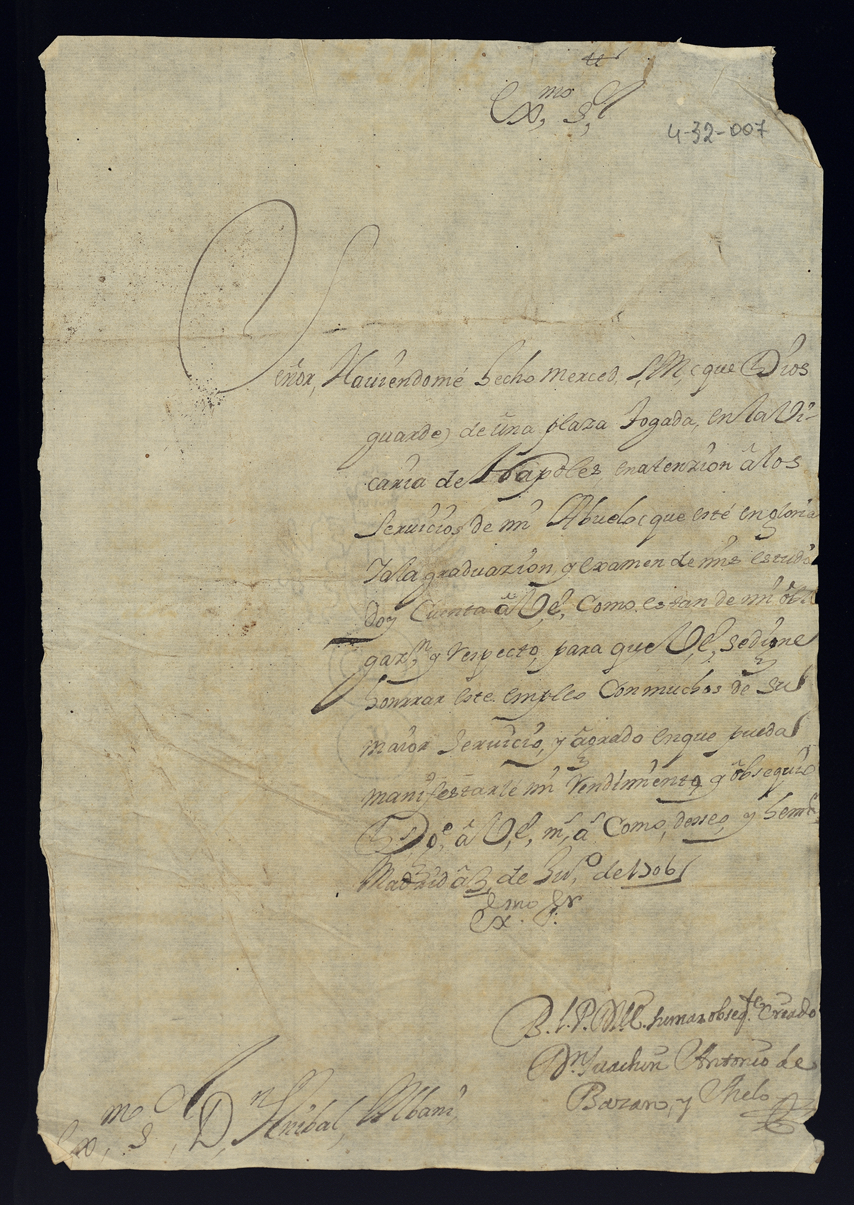 Ex.mo S.r
4-32-007
Señor, Haviendomé hecho merced, S, M, (que Dios
guarde) de una plaza Jogada, en la Vi-
caria de Napoles en atenzion â los
Servicios de mi Abuelo (que esté en gloria
Y a la graduazion, y examen de mis estudio
doy Cuenta â V, e, Como, estan de mi obli
gaz.n y respecto, para que V, e, se digne
honrrar este empleo Con muchos de su
maior Servicio, y agrado en que pueda
manifestarle mi rendimiento, y obsequio
G.e Dios, â V, e, m,s a.s Como, deseo, y
Madrid â 3, de de 1706
Ex.mo S.r
B. L. P. D. V.E. su mas obseq.te Criado
D.n Juachin Antonio de
Bazan, y
Ex.mo S.r D.n Anibal, Albani,